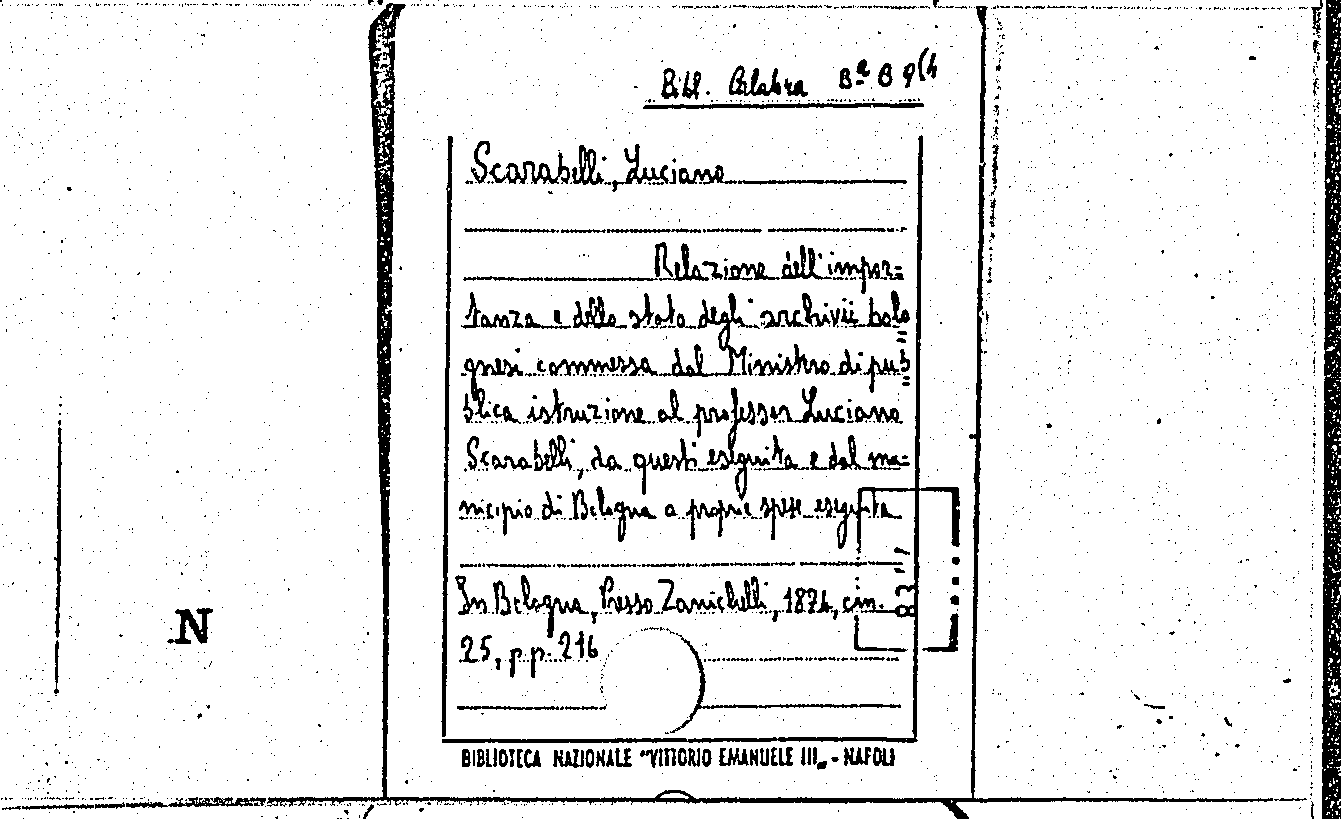 Bibl. Calabra Bª B 9(4
Scarabelli, Luciano
Relazione dell'impor=
tanza e dello stato degli archivii bolo
gnesi commessa dal Ministro di pub
blica istruzione al professor Luciano
Scarabelli, da questi eseguita e dal mu=
nicipio di Bologna a proprie spese eseguita
In Bologna, Presso Zanichelli, 1874, cm.
25, pp. 216
BIBLIOTECA NAZIONALE "VITTORIO EMANUELE III„ - NAPOLI
N